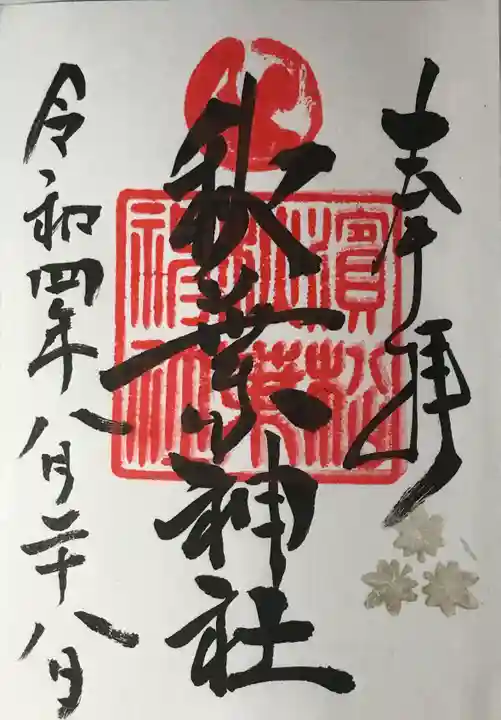 奉拝
濱松
秋葉
神社
秋葉神社
令和四年八月二十八日